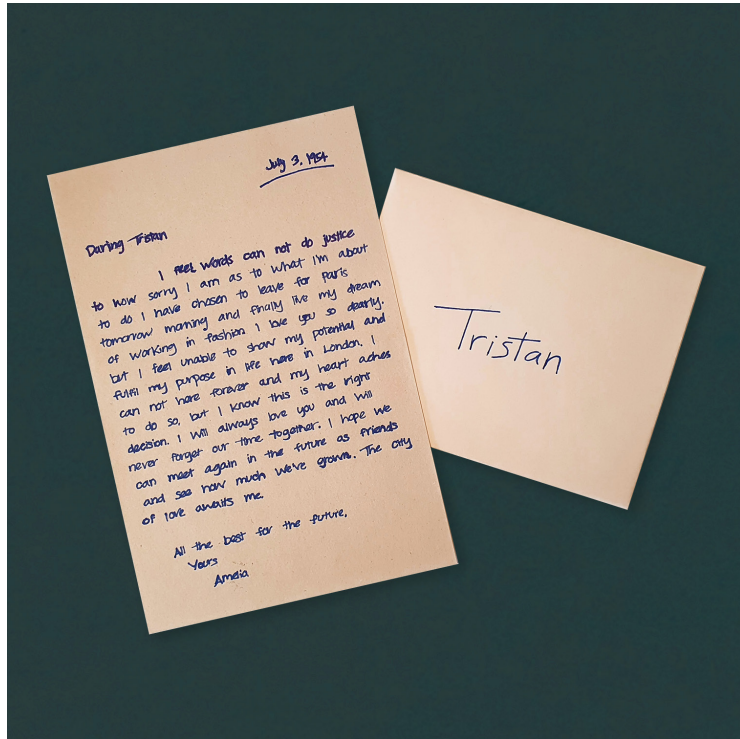 July 3, 1954
Darling Tristan
I feel words can not do justice
to how sorry I am as to what I'm about
to do I have chosen to leave for Paris
tomorrow morning and finally live my dream
of working in fashion I love you so dearly.
but I feel unable to show my potential and
fulfil my purpose in life here in London. I
can not here forever and my heart aches
to do so, but I know this is the right
decision. I will always love you and will
never forget our time together. I hope we
can meet again in the future as friends
and see how much we've grown. The city
of love awaits me.
All the best for the future,
Yours
Amelia
Tristan